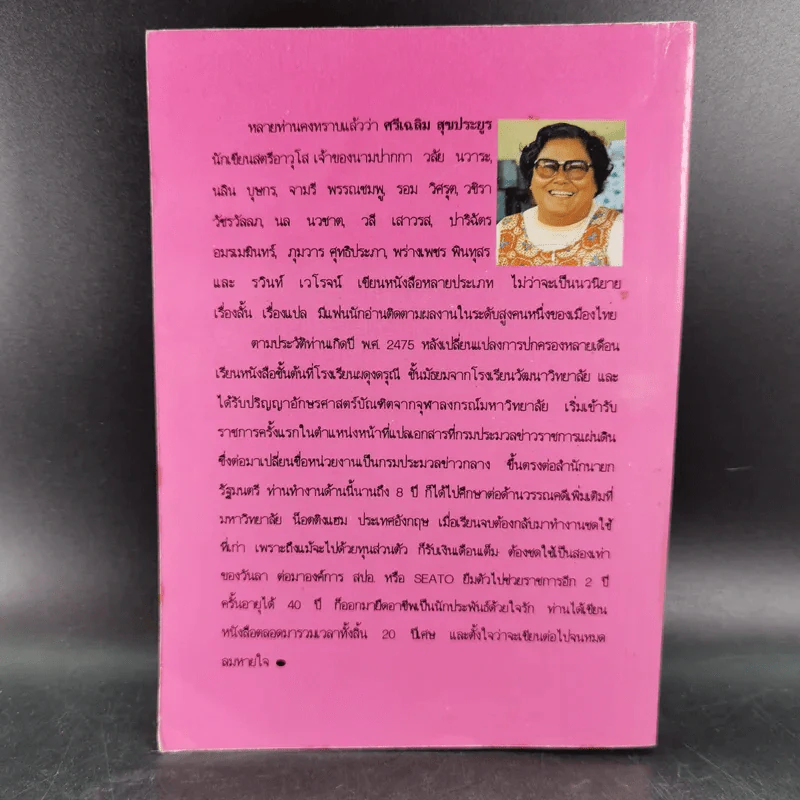 หลายท่านคงทราบแล้วว่า ศรีเฉลิม สุขประยูร
นักเขียนสตรีอาวุโส เจ้าของนามปากกา วลัย นวาระ,
นลิน บุษกร, จามรี พรรณชมพู, รอม วิศรุต, วชิรา
วัชรวัลลภ, นล นวชาต, วลี เสาวรส, ปาริฉัตร
อมรเมฆินทร์, ภูมวาร ศุทธิประภา, พร่างเพชร พินทุสร
และ รวินท์ เวโรจน์ เขียนหนังสือหลายประเภท ไม่ว่าจะเป็นนวนิยาย
เรื่องสั้น เรื่องแปล มีแฟนนักอ่านติดตามผลงานในระดับสูงคนหนึ่งของเมืองไทย
ตามประวัติท่านเกิดปี พ.ศ. 2475 หลังเปลี่ยนแปลงการปกครองหลายเดือน
เรียนหนังสือชั้นต้นที่โรงเรียนผดุงดรุณี ชั้นมัธยมจากโรงเรียนวัฒนาวิทยาลัย และ
ได้รับปริญญาอักษรศาสตร์บัณฑิตจากจุฬาลงกรณ์มหาวิทยาลัย เริ่มเข้ารับ
ราชการครั้งแรกในตำแหน่งหน้าที่แปลเอกสารที่กรมประมวลข่าวราชการแผ่นดิน
ซึ่งต่อมาเปลี่ยนชื่อหน่วยงานเป็นกรมประมวลข่าวกลาง ขึ้นตรงต่อสำนักนายก
รัฐมนตรี ท่านทำงานด้านนี้นานถึง 8 ปี ก็ได้ไปศึกษาต่อด้านวรรณคดีเพิ่มเติมที่
มหาวิทยาลัย น็อตติงแฮม ประเทศอังกฤษ เมื่อเรียนจบต้องกลับมาทำงานชดใช้
ที่เก่า เพราะถึงแม้จะไปด้วยทุนส่วนตัว ก็รับเงินเดือนเต็ม ต้องชดใช้เป็นสองเท่า
ของวันลา ต่อมาองค์การ สปอ. หรือ SEATO ยืมตัวไปช่วยราชการอีก 2 ปี
ครั้นอายุได้ 40 ปี ก็ออกมายึดอาชีพเป็นนักประพันธ์ด้วยใจรัก ท่านได้เขียน
หนังสือตลอดมารวมเวลาทั้งสิ้น 20 ปีเศษ และตั้งใจว่าจะเขียนต่อไปจนหมด
ลมหายใจ